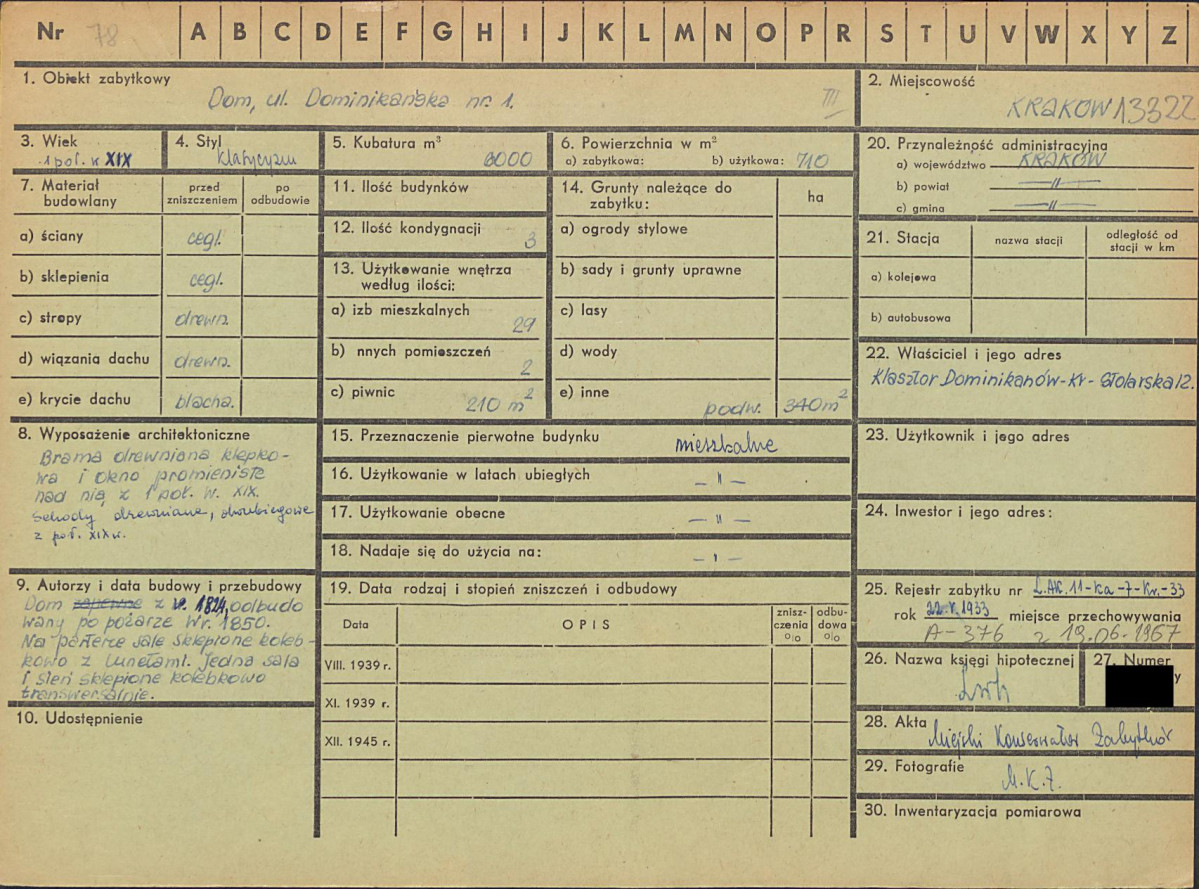 Nr 78 A B C D E F G H I J K L M N O P R S T U V W X Y Z
1. Obiekt zabytkowy
Dom, ul. Dominikańska nr 1. III
2. Miejscowość
KRAKÓW 13322
3. Wiek
1 poł. w XIX
4. Styl
klasycyzm
5. Kubatura m³
6000
6. Powierzchnia w m²
a) zabytkowa: b) użytkowa: 710
20. Przynależność administracyjna
a) województwo KRAKÓW
b) powiat —"—
c) gmina —"—
7. Materiał budowlany
przed zniszczeniem
po odbudowie
a) ściany cegl.
b) sklepienia cegl.
c) stropy drewn.
d) wiązania dachu drewn.
e) krycie dachu blacha.
11. Ilość budynków
12. Ilość kondygnacji
3
13. Użytkowanie wnętrza
według ilości:
a) izb mieszkalnych
29
b) nnych pomieszczeń
2
c) piwnic 210 m²
14. Grunty należące do
zabytku:
ha
a) ogrody stylowe
b) sady i grunty uprawne
c) lasy
d) wody
e) inne
podw. 340 m²
21. Stacja
nazwa stacji
odległość od
stacji w km
a) kolejowa
b) autobusowa
22. Właściciel i jego adres
Klasztor Dominikanów-Kr- Stolarska 12.
8. Wyposażenie architektoniczne
Brama drewniana klepko-
wa i okno promieniste
nad nią z 1 poł. w. XIX.
schody drewniane, dwubiegowe
z poł. XIX w.
15. Przeznaczenie pierwotne budynku mieszkalne
16. Użytkowanie w latach ubiegłych — " —
17. Użytkowanie obecne — " —
18. Nadaje się do użycia na: — " —
23. Użytkownik i jego adres
24. Inwestor i jego adres:
9. Autorzy i data budowy i przebudowy
Dom zapewne z r. 1824, odbudo
wany po pożarze w r. 1850.
Na parterze sale sklepione koleb-
kowo z lunetami. Jedna sala
i sień sklepione kolebkowo
transwersalnie.
10. Udostępnienie
19. Data rodzaj i stopień zniszczeń i odbudowy
Data
OPIS
znisz-
czenia
o/o
odbu-
dowa
o/o
VIII. 1939 r.
XI. 1939 r.
XII. 1945 r.
25. Rejestr zabytku nr L.AK.11-Ka-7-Kr.-33
rok 22.V.1933 miejsce przechowywania
A-376 z 19.06.1967
26. Nazwa księgi hipotecznej
Lwh
27. Numer
y
28. Akta Miejski Konserwator Zabytków
29. Fotografie
M.K.Z.
30. Inwentaryzacja pomiarowa